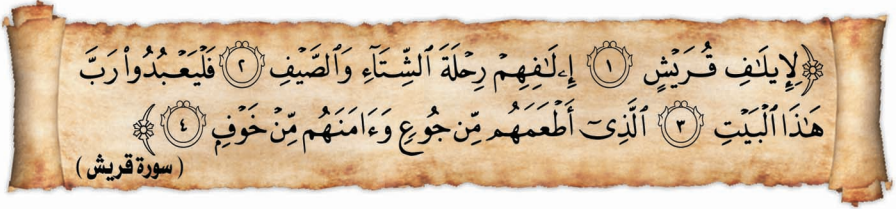 ﴿لِإِيلَٰفِ قُرَيْشٍ ١ إِۦلَٰفِهِمْ رِحْلَةَ ٱلشِّتَآءِ وَٱلصَّيْفِ ٢ فَلْيَعْبُدُوا۟ رَبَّ
هَٰذَا ٱلْبَيْتِ ٣ ٱلَّذِىٓ أَطْعَمَهُم مِّن جُوعٍ وَءَامَنَهُم مِّنْ خَوْفٍ ٤﴾
(سورة قريش)